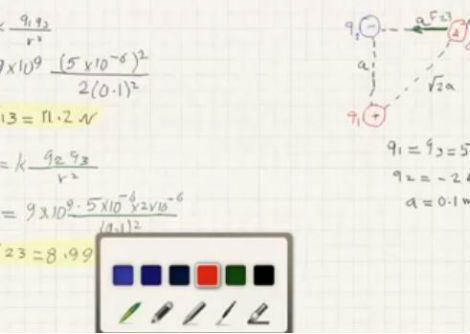 k q₁q₃ / r²
9×10⁹ (5×10⁻⁶)² / 2(0.1)²
13 = 11.2 N
= k q₂q₃ / r²
= 9×10⁹·5×10⁻⁶×2×10⁻⁶ / (0.1)²
23 = 8.99
q₂ − a F23
a
√2a
q₁ +
q₁ = q₃ = 5
q₂ = −2
a = 0.1 m